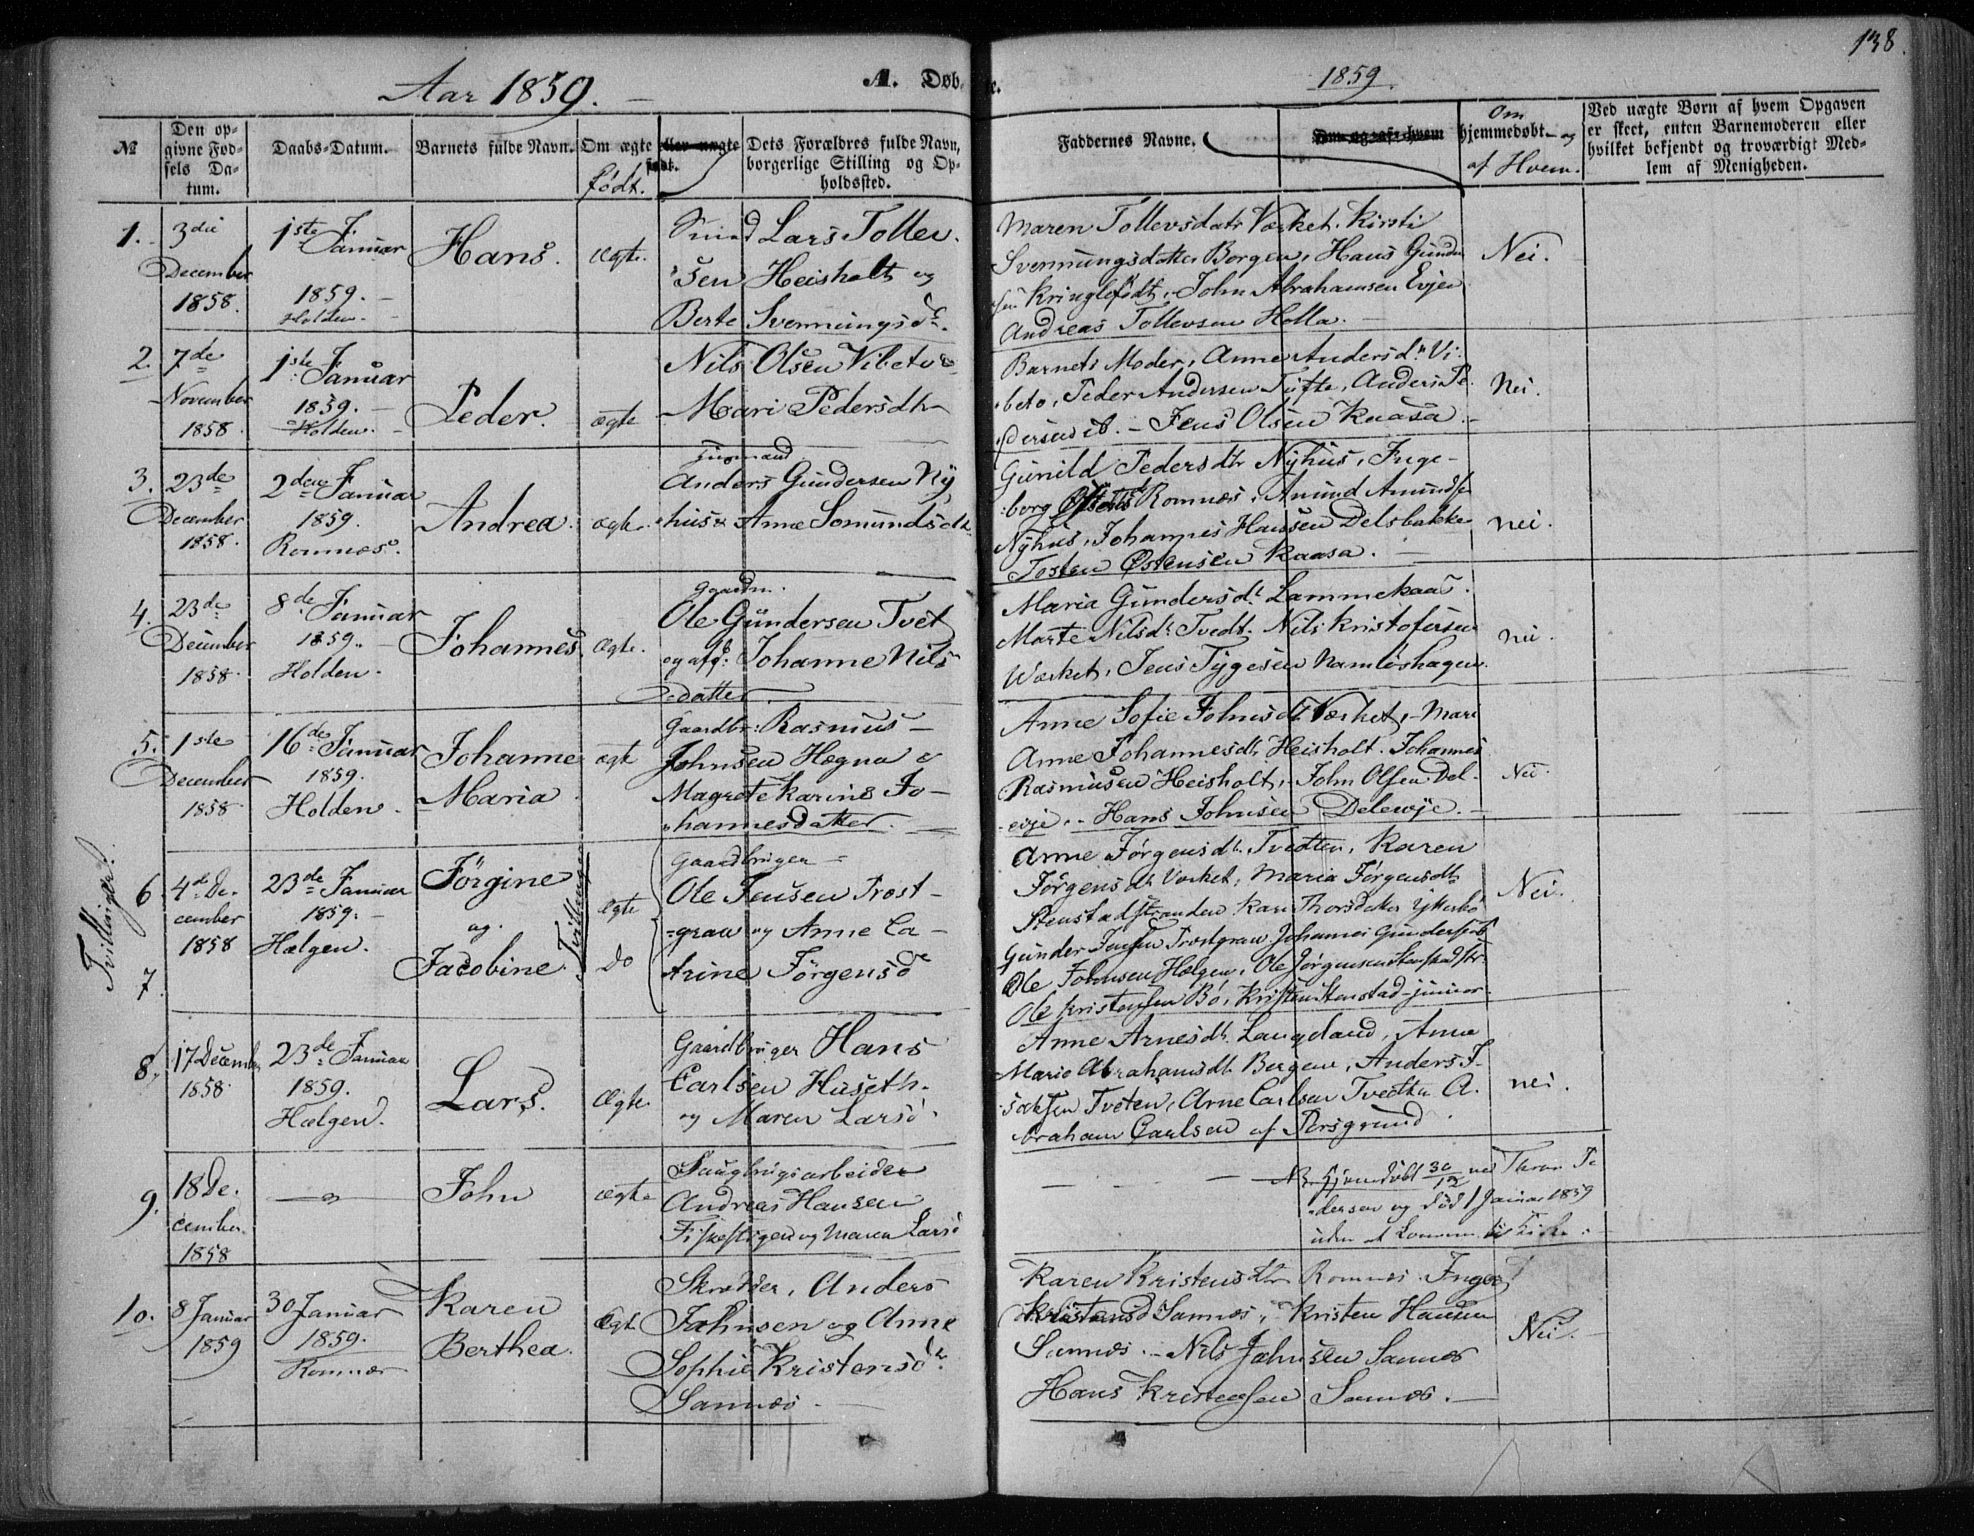 138.
Aar 1859. —
A. Døbte.
1859.
№
Den opgivne Fødsels Datum.
Daabs-Datum.
Barnets fulde Navn.
Om ægte eller uægte født.
født.
Dets Forældres fulde Navn, borgerlige Stilling og Opholdssted.
Faddernes Navne.
Om og af hvem
Om hjemmedøbt og af Hvem.
Ved uægte Børn af hvem Opgaven er skeet, enten Barnemoderen eller hvilket bekjendt og troværdigt Medlem af Menigheden.
1.
3die
December
1858.
1ste Januar
1859.
Holden.
Hans.
ægte.
Smed Lars Tollev-
sen Heisholt og
Berte Svennungsdr.
Maren Tollevsdatr Værket. Kirsti
Svennungsdatter Borgen, Hans Gunder
sen Kringlefødt, John Abrahamsen Evjen
Andreas Tollevsen Holla.
Nei.
2.
7de
November
1858.
1ste Januar
1859.
Holden.
Peder.
ægte
Nils Olsen Vibeto &
Mari Pedersdtr
Barnets Moder, Anne Andersdr. Vi-
beto, Peder Andersen Tufte, Anders Pe-
dersen ib. — Jens Olsen Kaasa.
Nei.
3.
23de
December
1858.
2den Januar
1859.
Romnæs.
Andrea.
ægte.
Anders Gundersen Ny
hus & Anne Somundsdtr
Gunild Pedersdtr Nyhus, Inge-
borg Romnæs, Amund Amunds.
Nyhus, Johannes Hansen Delsbakke
Tosten Østensen Kaasa.
nei.
4.
23de
December
1858.
8de Januar
1859.
Holden.
Johannes.
Ægte.
Gaardm.
Ole Gundersen Tvet
og Johanne Nils
datter
Maria Gundersdt. Lammekaas.
Marte Nilsdt. Tvedt. Nils Kristofersen
Værket, Jens Tygesen Namløshagen.
nei.
5.
1ste
December
1858
16de Januar
1859.
Holden.
Johanne
Maria.
ægte
Gaardbr: Rasmus
Johnsen Hægna &
Magrete Karine Jo-
hannesdatter.
Anne Sofie Johnsdt. Værket, Mari
Anne Johannesdt. Heisholt. Johannes
Rasmusen Heisholt, John Olsen Del-
evje. Hans Johnsen Delevje.
Nei.
Tvillinger.
6
7.
4de De-
cember
1858
23de Januar
1859.
Hælgen.
Jörgine
og.
Jacobine.
Tvillinger
ægte
do
Gaardbruger
Ole Jensen Trost-
graw og Anne Ca-
trine Jörgensd.
Anne Jörgensdt. Tvedten, Karen
Jörgensdt. Værket, Maria Jörgensdt.
Stenstadstranden Kari Thorsdatter
Gunder Jensen Trostgraw Johannes Gunders
Ole Johnsen Hælgen, Ole Jörgensen Stenstadstr.
Ole Kristensen Bö, Kristen Stenstad junior
Nei.
8.
17 December
1858.
23de Januar
1859.
Hælgen.
Lars.
Ægte.
Gaardbruger Hans
Carlsen Huseth.
og Maren Larsd.
Anne Arnesdt. Langeland, Anne
Marie Abrahamsdt. Bergene, Anders I-
saksen Tveten, Arne Carlsen Tvedten A-
braham Carlsen af Porsgrund
nei.
9.
18 De-
cember.
1858
John
ægte
Saugbrugsarbeider
Andreas Hansen
Fiskestigen og Maren Larsd.
NB. Hjemdøbt 30/12 ved Thron Pe
dersen og død 1 Januar 1859
uden at komme til Kirke.
10.
8 Januar
1859
30 Januar
1859.
Romnæs
Karen
Berthea.
Ægte
Skrædder, Anders
Jahnsen og Anne
Sophie Kristensdr.
Sannæs.
Karen Kristensdtr Romnæs. Inger
Kristensd. Sannæs, Kristen Hansen
Sannæs. — Nils Jahnsen Sannæs
Hans Kristensen Sannæs.
Nei.